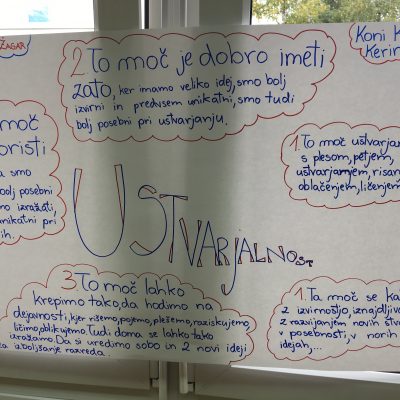 ŽAGAR
2 To moč je dobro imeti
zato, ker imamo veliko idej, smo bolj
izvirni in predvsem unikatni, smo tudi
bolj posebni pri ustvarjanju.
Koni K
Kerin
moč
oristi
smo
bolj posebni
mo izražati,
unikatni pri
ih.
1. To moč ustvarja
s plesom, petjem,
ustvarjamjem, risan
oblačenjem, ličenjem
USTVARJALNOST
3 To moč lahko
krepimo tako, da hodimo na
dejavnosti, kjer rišemo, pojemo, plešemo, raziskujemo,
ličimo, oblikujemo. Tudi doma se lahko tako
izražamo. Da si uredimo sobo in 2 novi ideji
za izboljšanje razreda.
1. Ta moč se ka
z izvirnostjo, iznajdljivo
z razvijanjem novih stva
v posebnosti, v norih
idejah,...